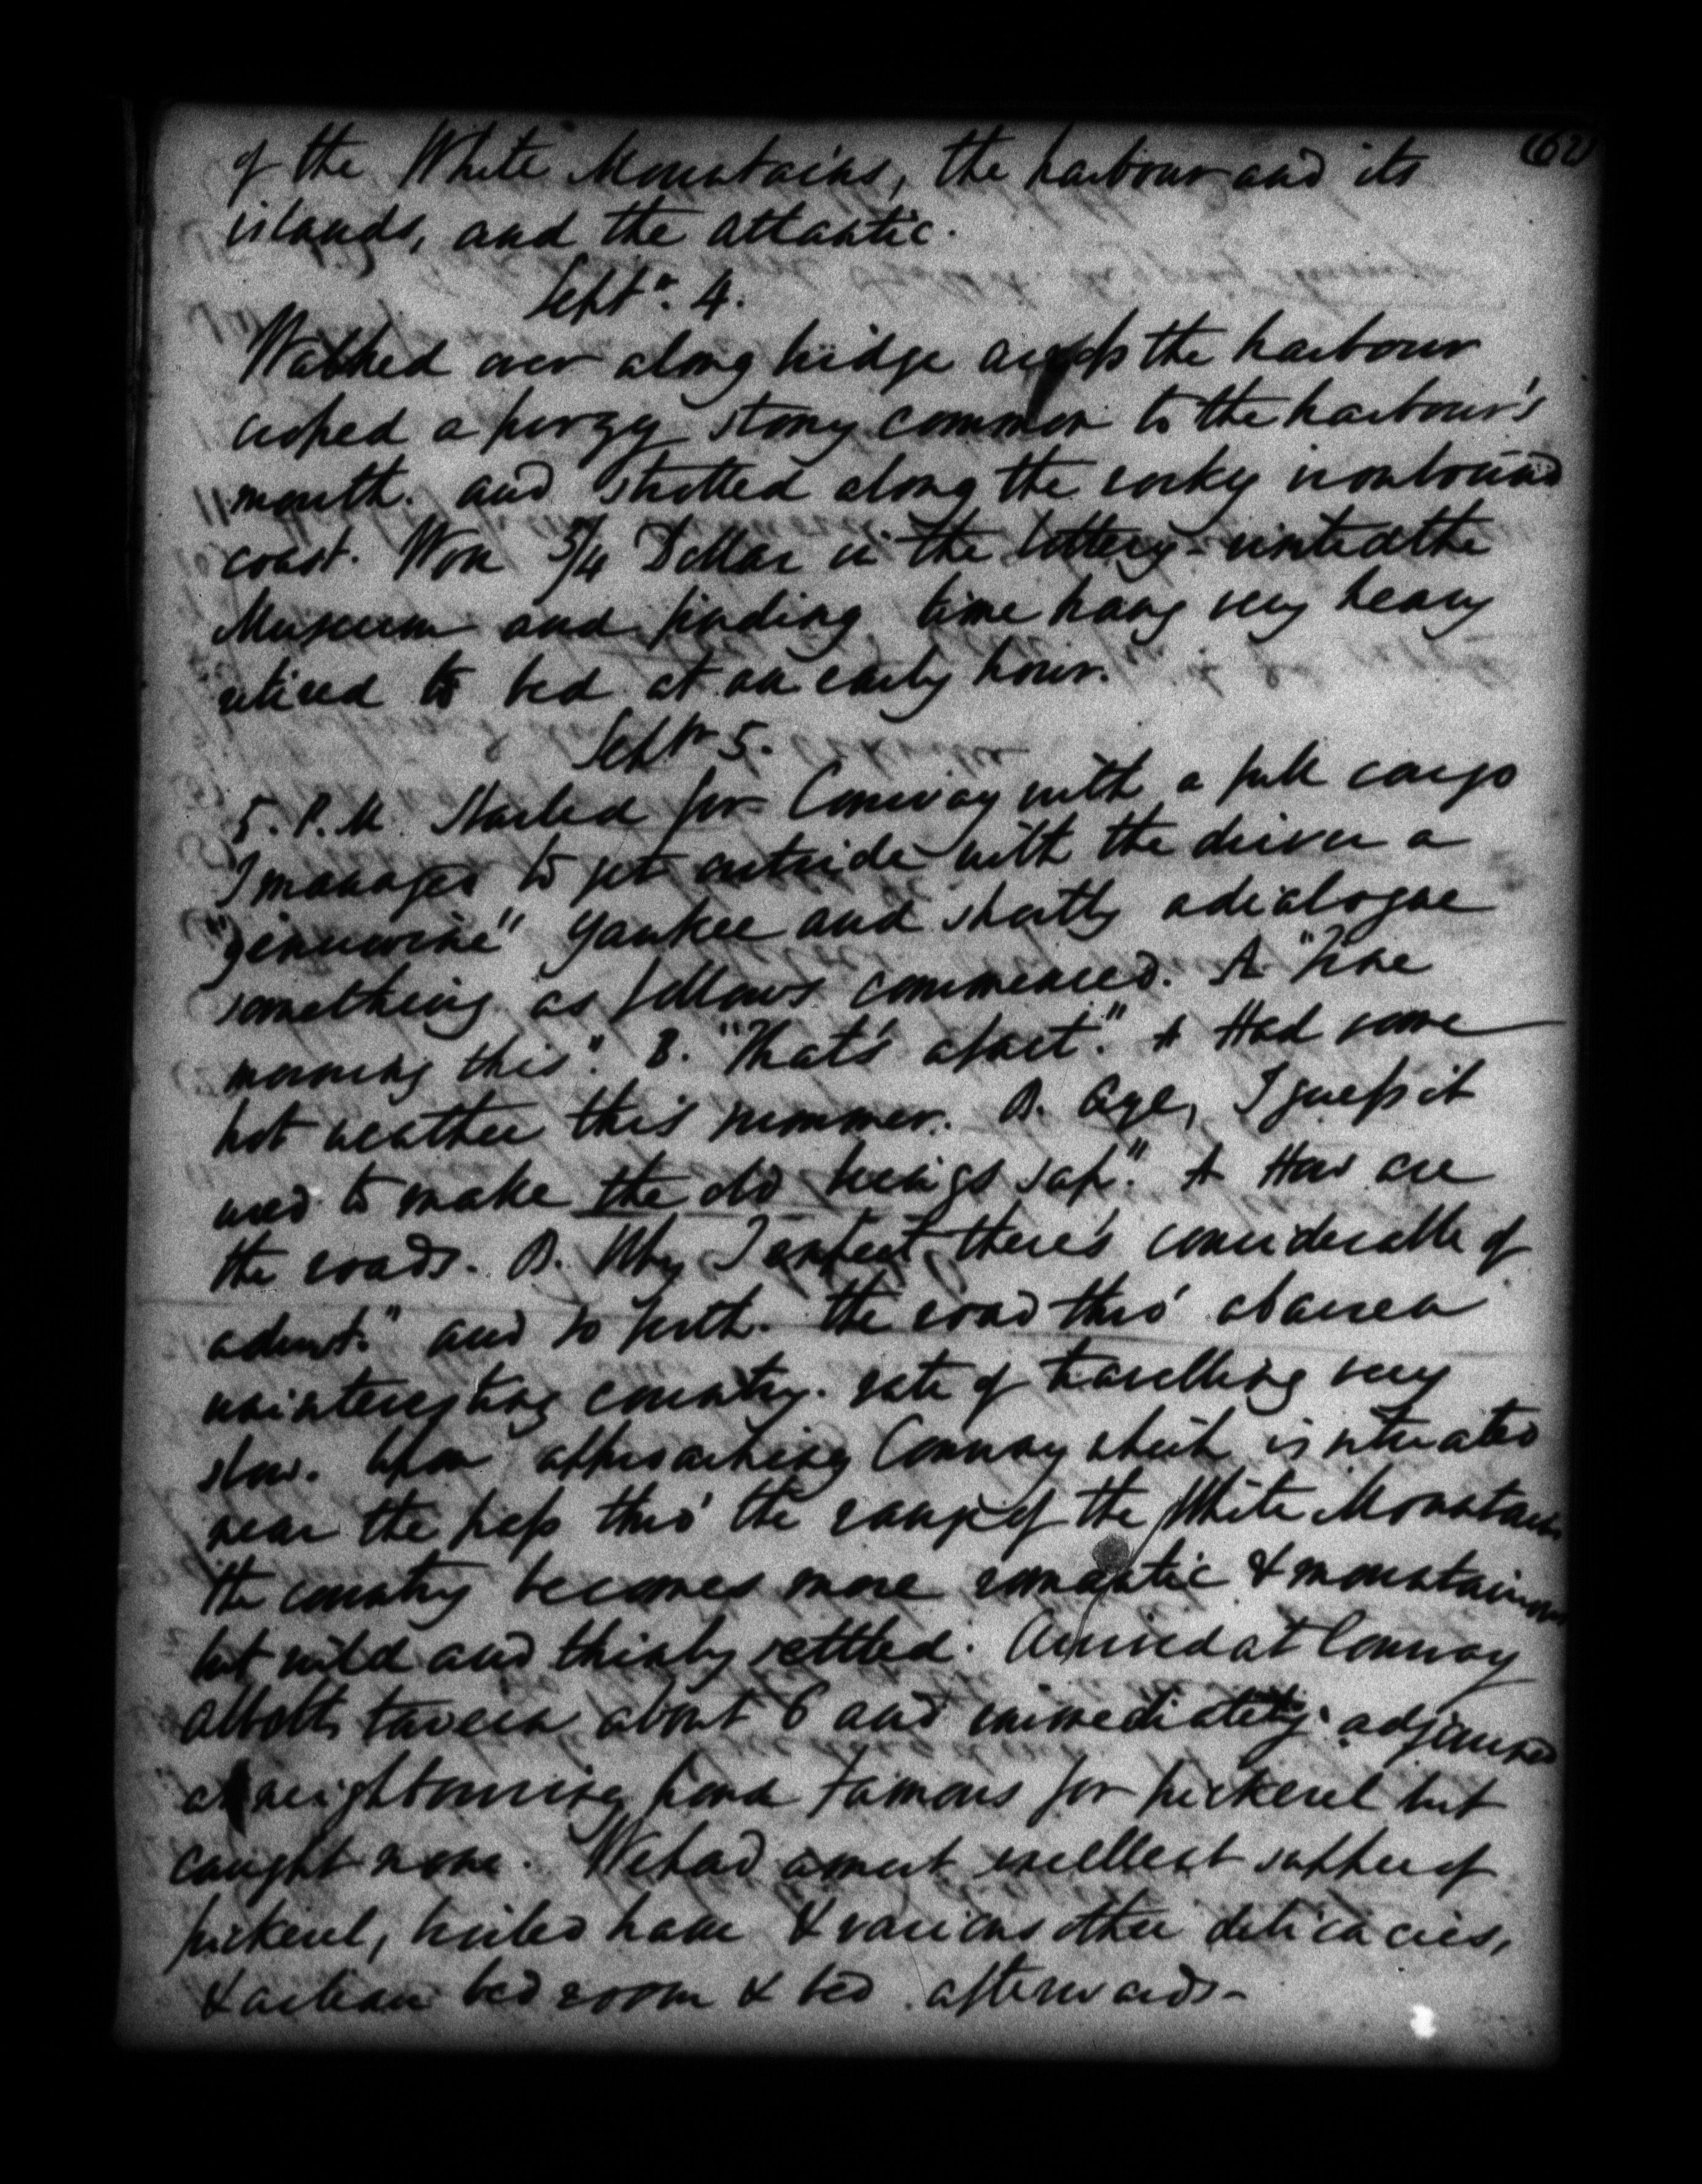 62
of the White Mountains, the harbour and its
islands, and the Atlantic.
Septr. 4.
Walked over a long bridge across the harbour
crossed a furzy stony common to the harbour's
mouth. and strolled along the rocky ironbound
coast. Won 3/4 Dollar in the lottery - visited the
Museum and finding time hang very heavy
retired to bed at an early hour.
Septr 5.
5. P.M. Started for Conway with a full cargo
I managed to get outside with the driver a
"genuwine" Yankee and shortly a dialogue
something as follows commenced. A "Fine
morning this". B. "That's a fact." A Had some
hot weather this summer. B. Aye, I guess it
used to make the old sap." A How are
the roads. B. Why I expect there's considerable of
a dust." and so forth. The road thro' a barren
uninteresting country. rate of travelling very
slow. Upon approaching Conway which is situated
near the pass thro' the range of the White Mountains
the country becomes more romantic & mountainous
but wild and thinly settled. Arrived at Conway
Abbotts tavern about 6 and immediately adjourned
a neighbouring pond famous for pickerel but
caught none. We had a most excellent supper of
pickerel, broiled ham & various other delicacies,
& a clean bed room & bed afterwards-